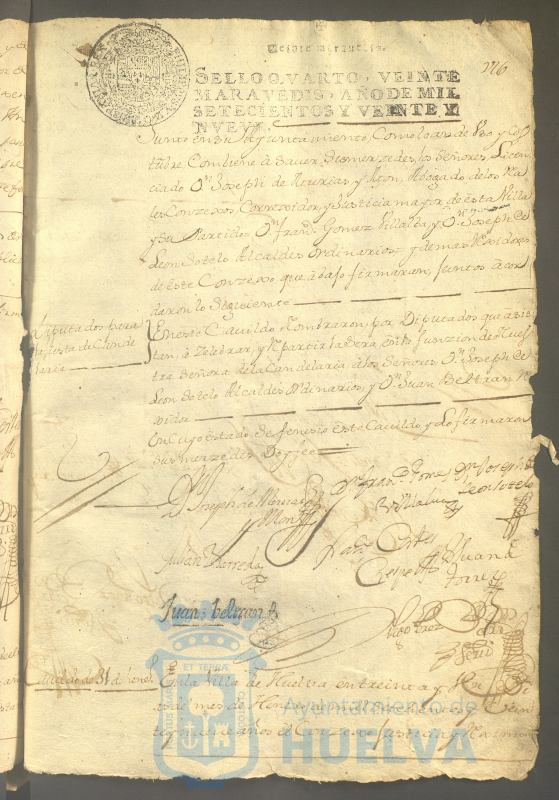 Veinte maravedis.
126
SELLO QVARTO, VEINTE
MARAVEDIS, AÑO DE MIL
SETECIENTOS Y VEINTE Y
NVEVE.
Juntos en su ayuntamiento, Como lo an de Uso y Cos
tũbre Combiene à Sauer, Susmerzedes, los Señores, Licen
ciado Dn Joseph de Abogado de los Rea
les Conzexos, Correxidor, y Justicia mayor de esta Villa
y Su Partido, Dn Franco Gomez Villalva, y Dn Joseph de
Leon Sotelo Alcaldes ordinarios, y demas Rexidores
de este Conzexo que àbajo firmaron, Juntos àcor
daron lo Siguiente
Diputados para
la fiesta de Cande
laria
En este Cauildo Nombraron, por Diputados que asis
tan, à Zelebrar, y Repartir la Zera, en la funcion de Nues
tra Señora de la Candelaria à los Señores, Dn Joseph de
Leon Sotelo Alcaldes Ordinarios, y Dn Juan Beltran Re
xidor
En Cuyo estado se feneció este Cauildo, y Lo firmaron
Sus merzedes Doy fee
Dn Joseph de
y
Dn Franco Gome
Villalva
Dn Joseph de
Leon Sotelo
Julian Barreda
Juan de
Torres
Juan Beltran
Diego
Scriuo
Cauildo de 31 de henero
En la Villa de Huelva en treinta y Un di
as del mes de Henero de mil Setecientos y Vein
te y nueve años el Conzexo Justicia y Reximien
PORTUS MARIS ET TERRAE CUSTODIA
Ayuntamiento de
HUELVA